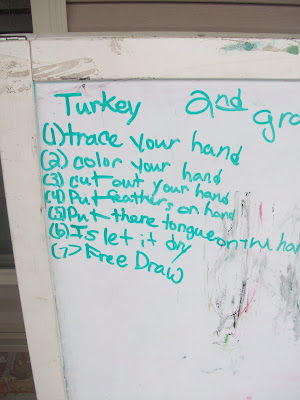 Turkey 2nd gra
(1) trace your hand
(2) color your hand
(3) cut out your hand
(4) Put feathers on hand
(5) Put there tongue on the han
(6) Is let it dry
(7) Free Draw